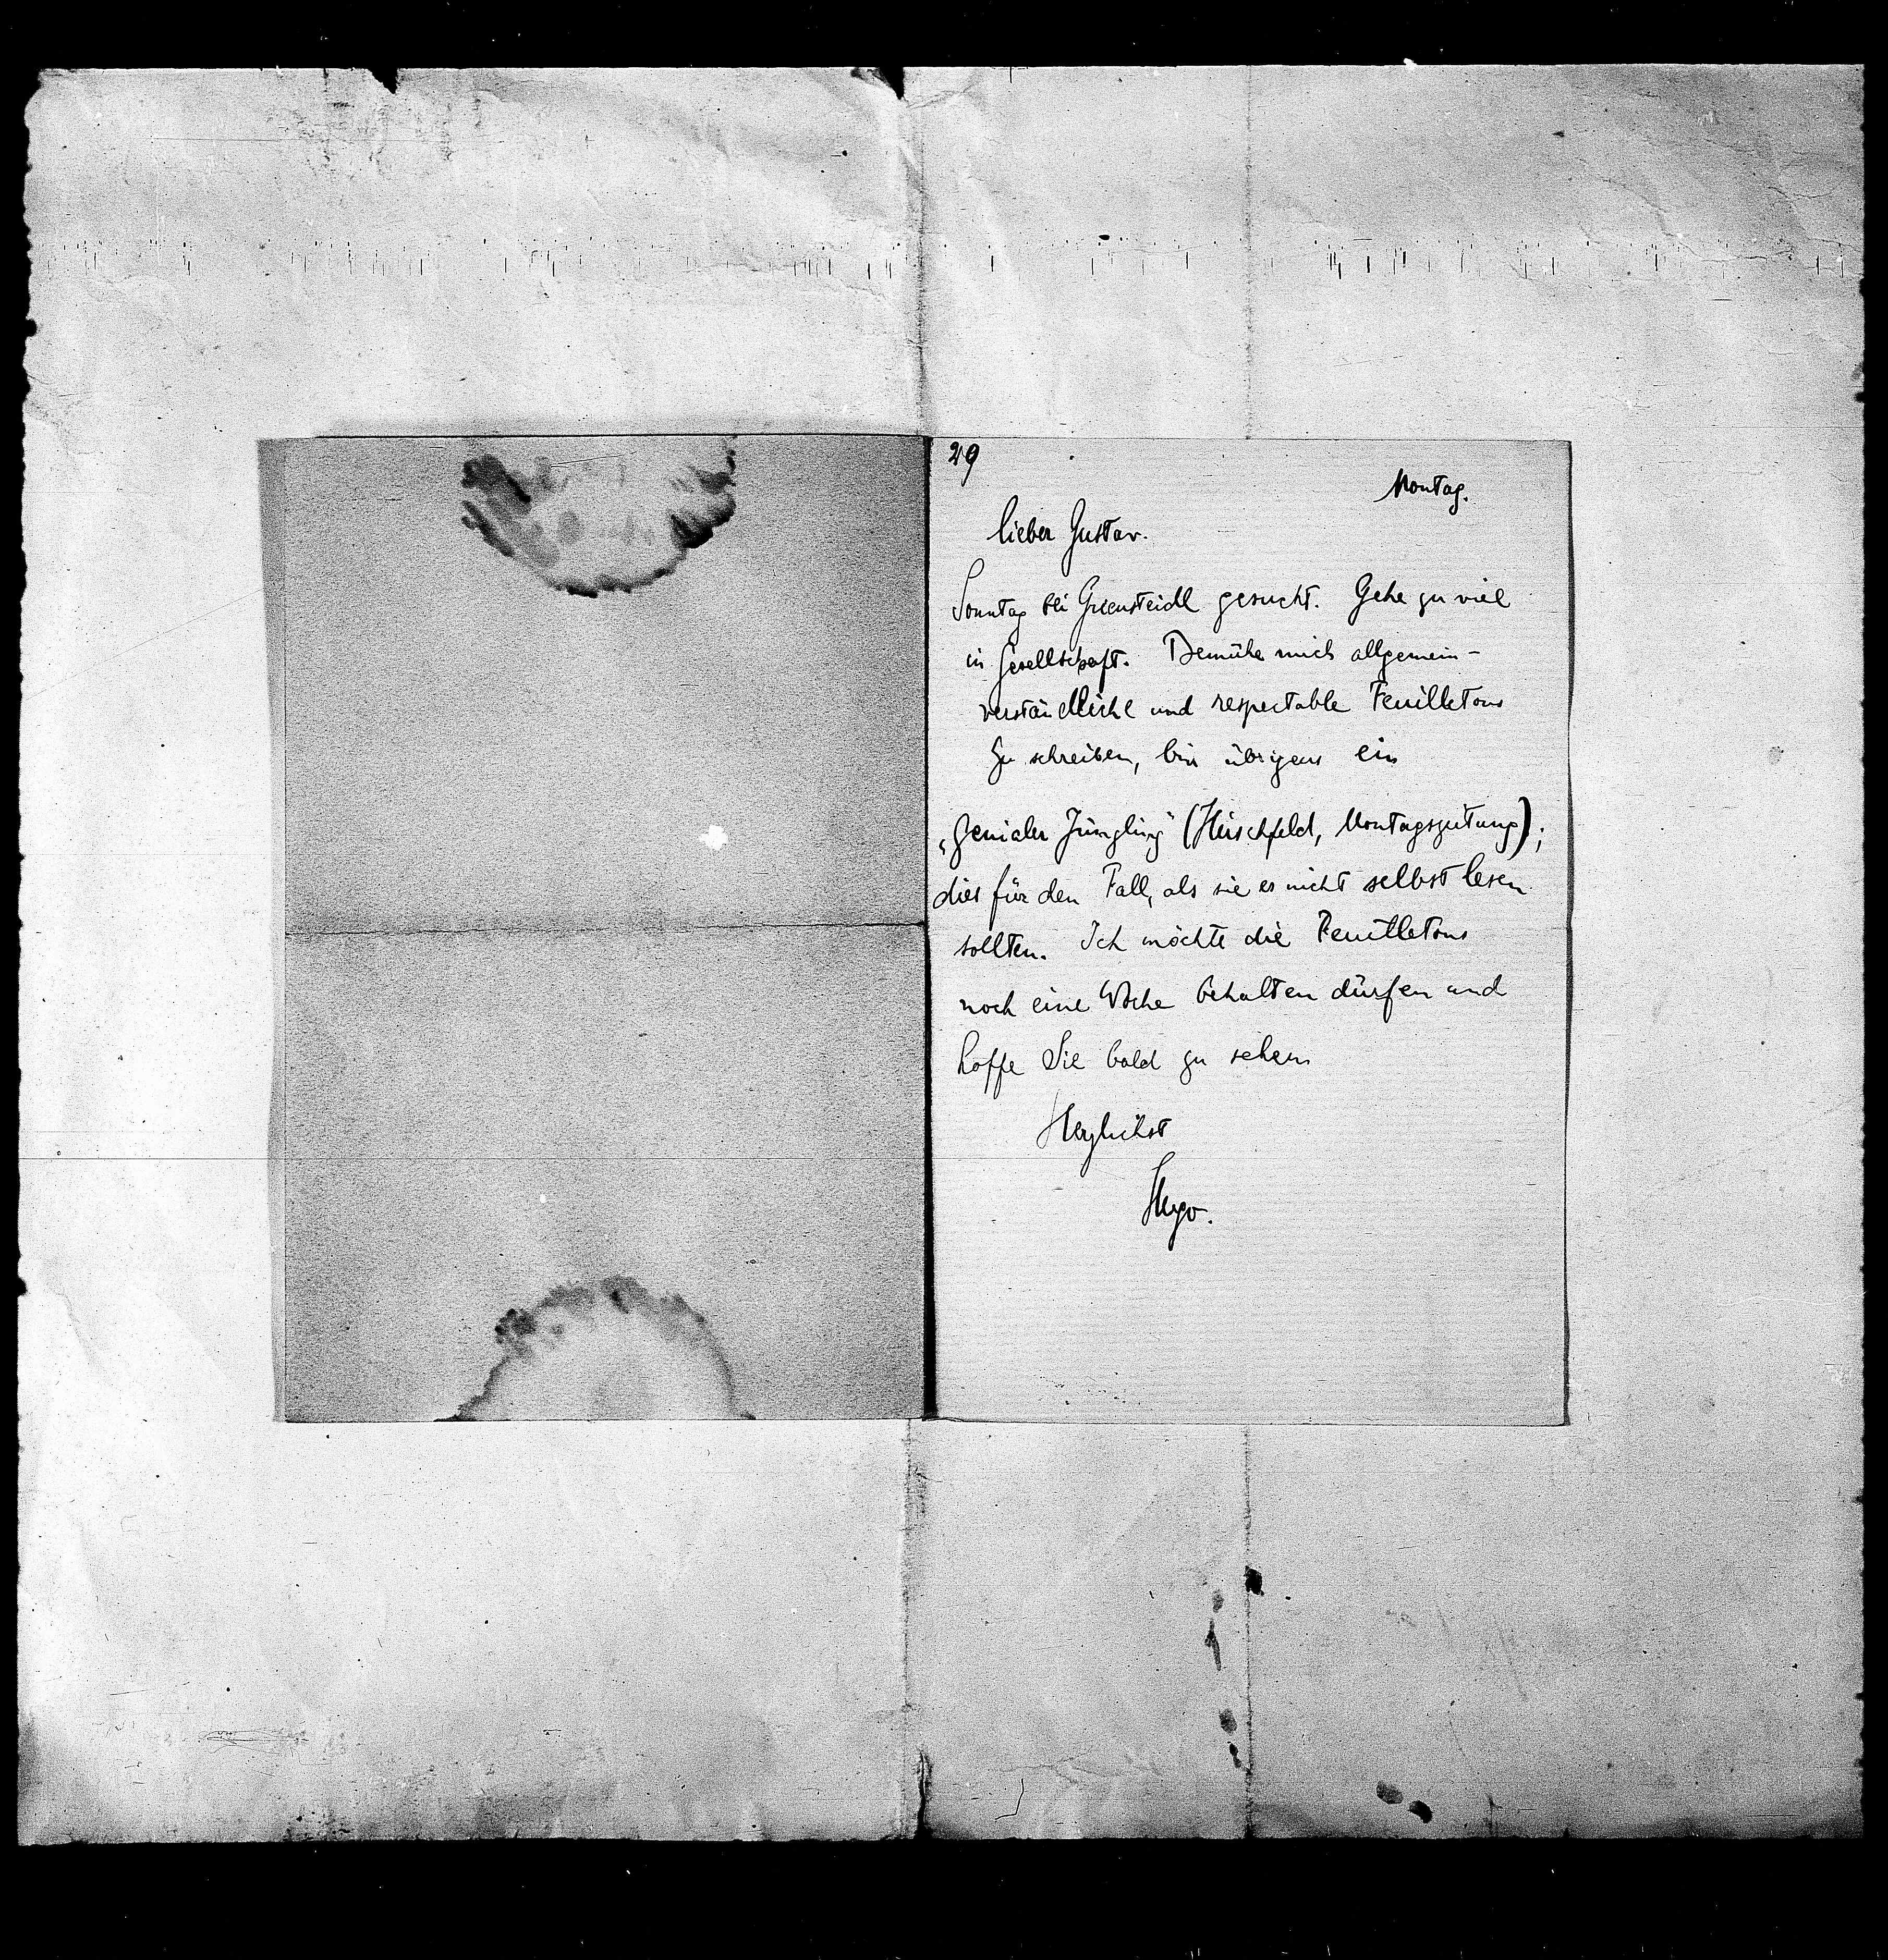 29
Montag.
lieber Gustav.
Sonntag bei Griensteidl gesucht. Gehe zu viel
in Gesellschaft. Bemühe mich allgemein-
verständliche und respectable Feuilletons
zu schreiben, bin übrigens ein
„genialer Jüngling" (Hirschfeld, Montagszeitung);
dies für den Fall, als sie es nicht selbst lesen
sollten. Ich möchte die Feuilletons
noch eine Woche behalten dürfen und
hoffe Sie bald zu sehen
Herzlichst
Hugo.